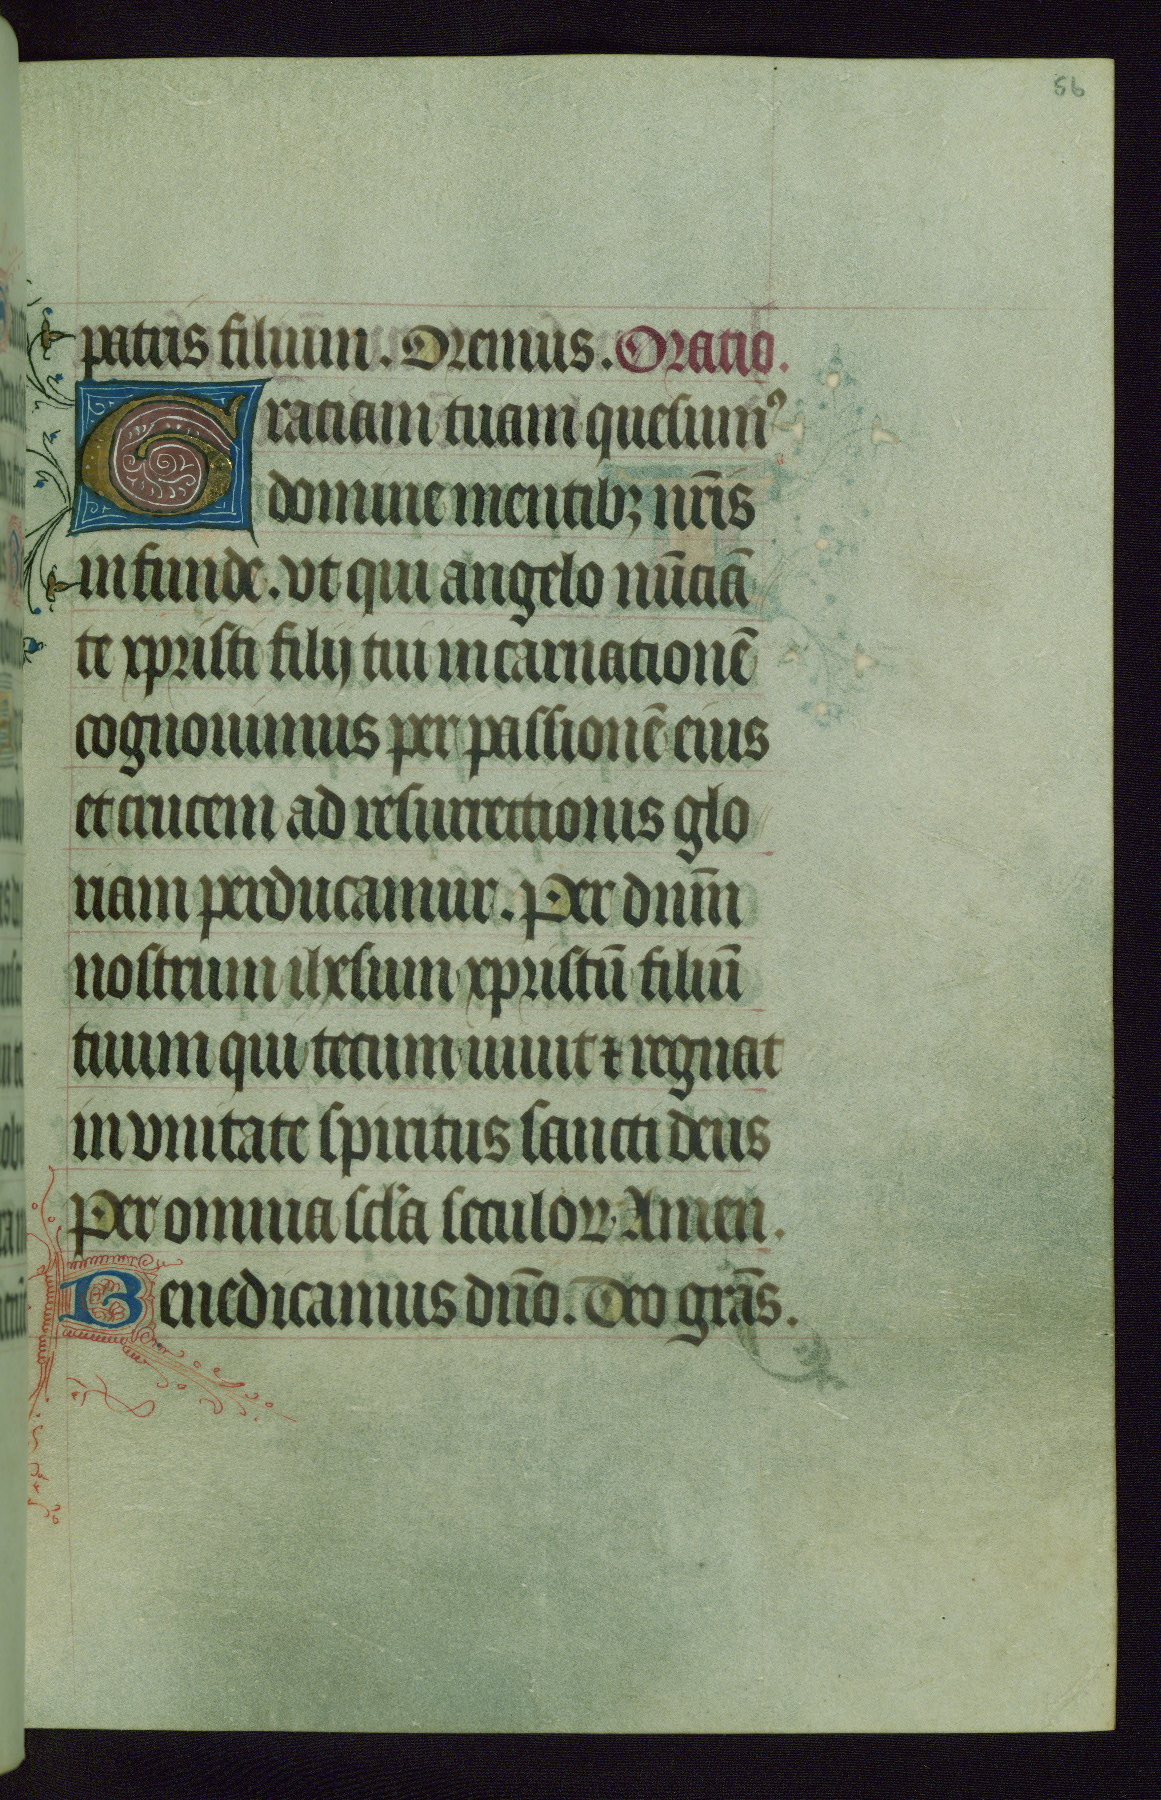 56
patris filium. Oremus. Oratio.
Gratiam tuam quesumꝰ
domine mentibꝫ nr̄is
infunde. vt qui angelo nūciā
te xpristi filij tui incarnationē
cognouimus per passionē eius
et crucem ad resurrectionis glo
riam perducamur. Per dnm̄
nostrum ihesum xpristū filiū
tuum qui tecum uiuit ⁊ regnat
in vnitate spiritus sancti deus
Per omnia scl̄a seculoꝝ Amen.
Benedicamus dn̄o. Deo grās.